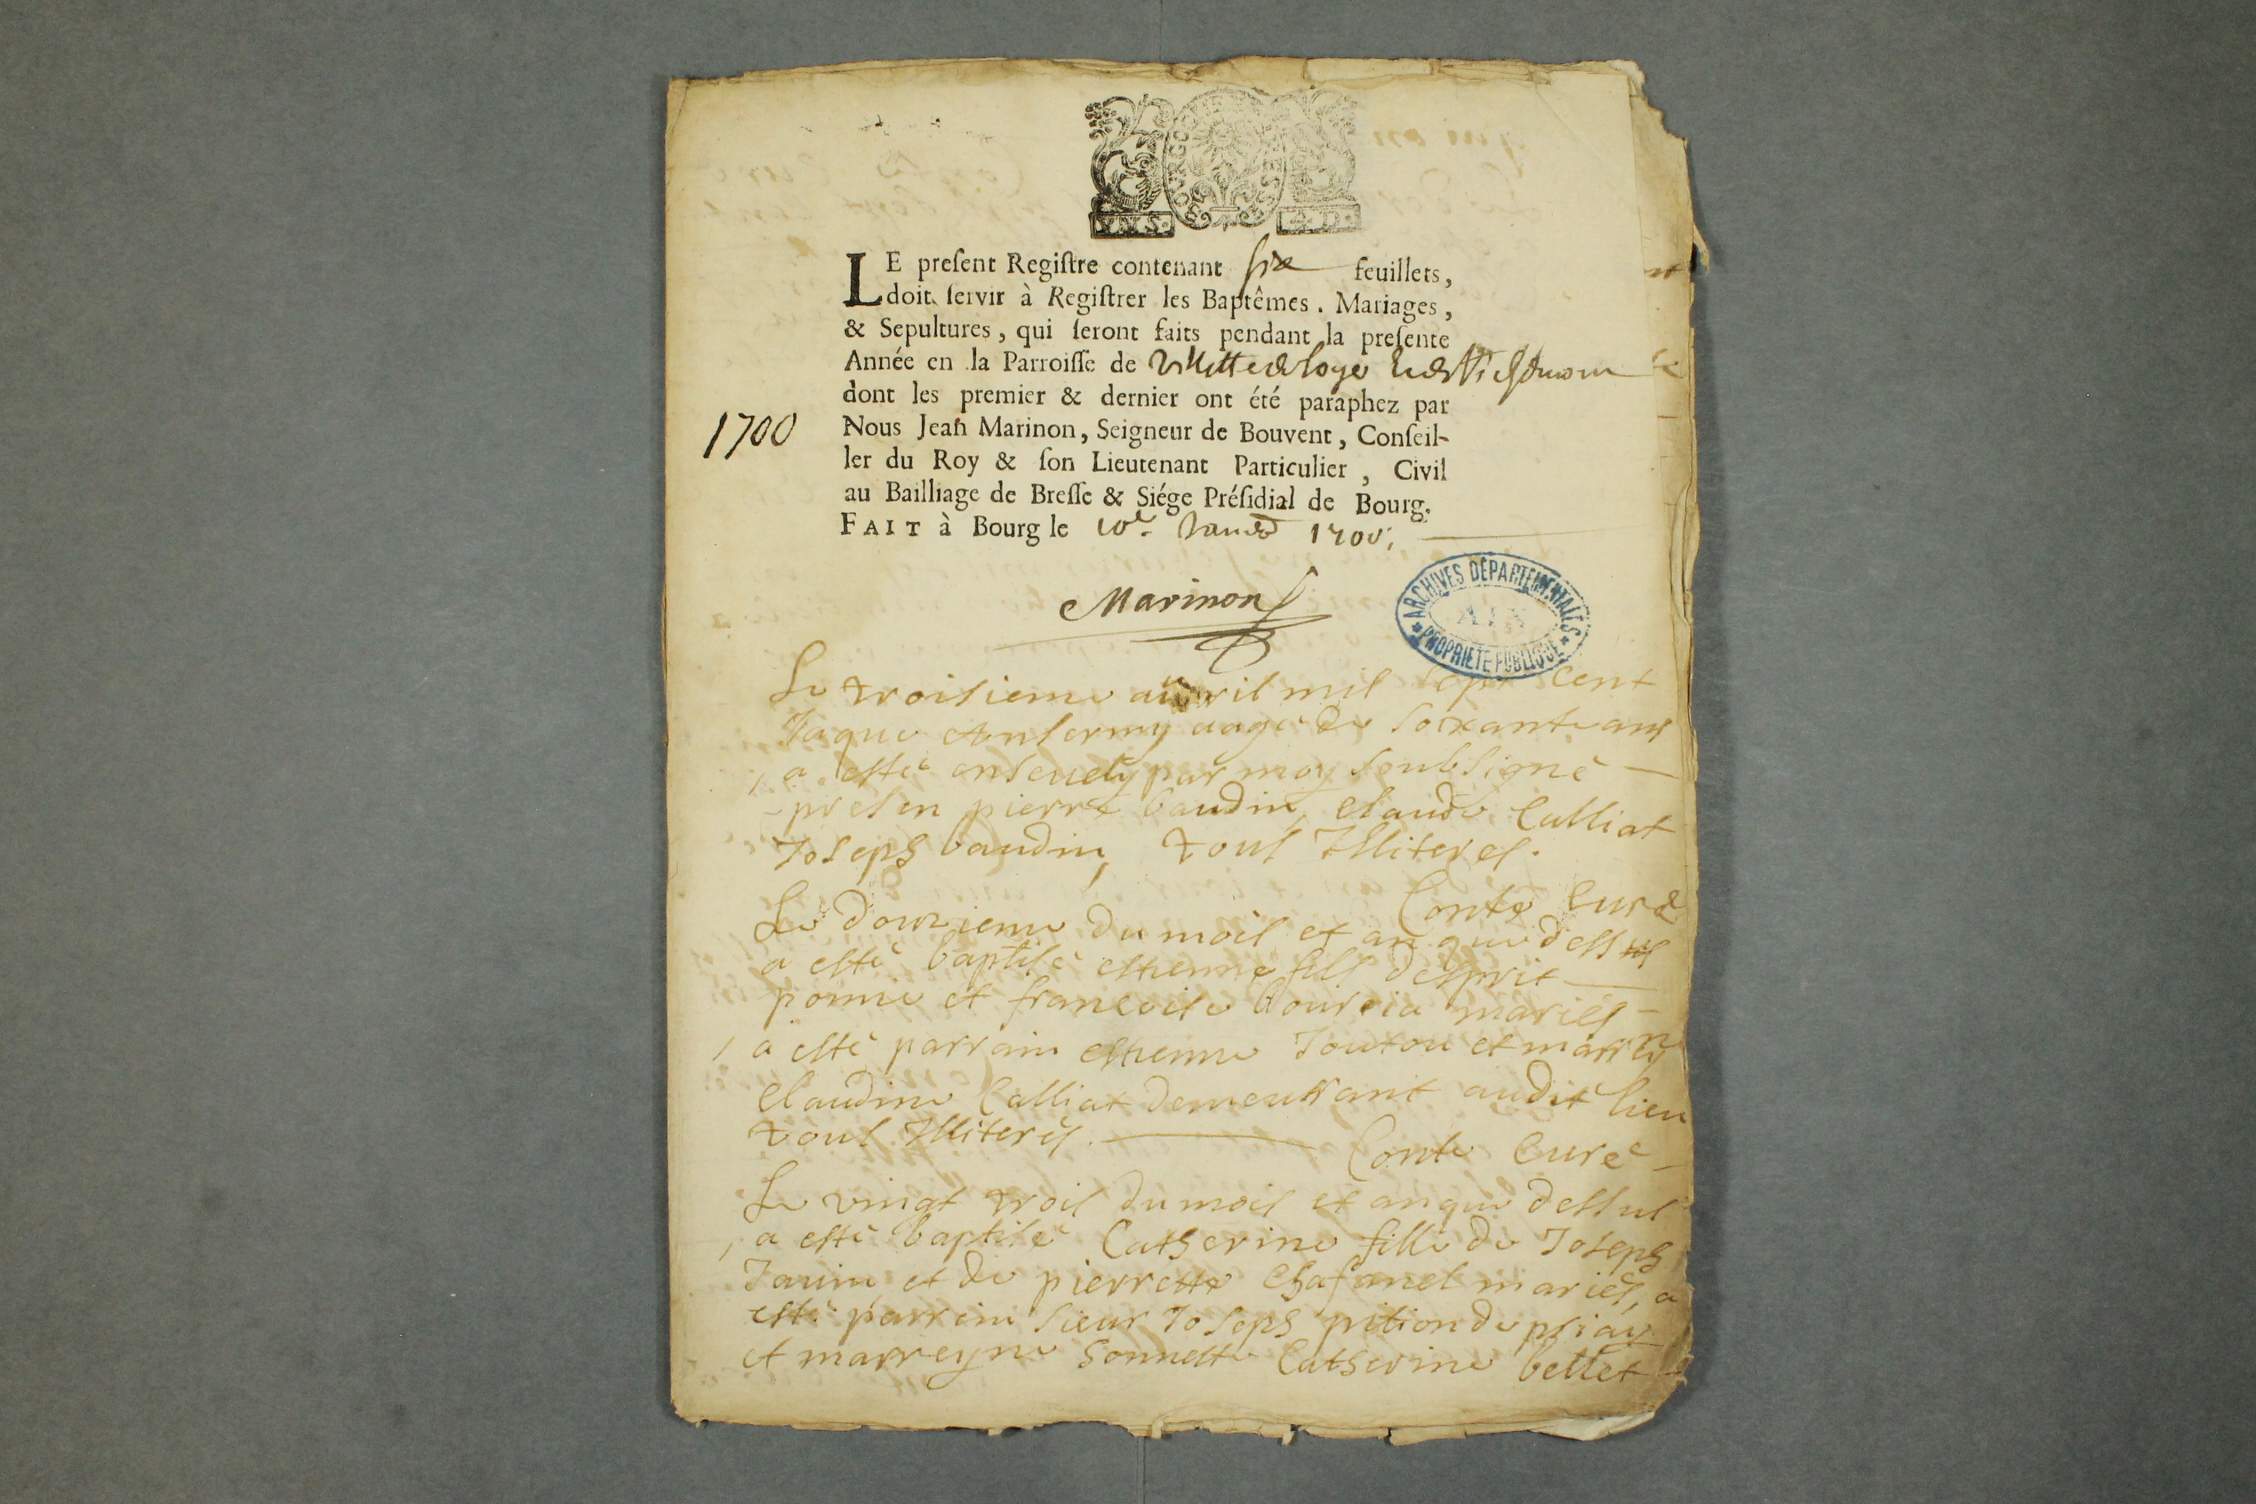 BOURGOGNE
LE preſent Regiſtre contenant six feuillets,
doit ſervir à Regiſtrer les Baptêmes. Mariages,
& Sepultures, qui ſeront faits pendant la preſente
Année en la Parroiſſe de Villette de Loye
dont les premier & dernier ont été paraphez par
1700
Nous Jean Marinon, Seigneur de Bouvent, Conſeil-
ler du Roy & ſon Lieutenant Particulier, Civil
au Bailliage de Breſſe & Siége Préſidial de Bourg.
FAIT à Bourg le 10e. 1700.
Marinon
ARCHIVES DÉPARTEMENTALES
AIN
PROPRIÉTÉ PUBLIQUE
Le troisieme auril mil sept cent
Jaque Antermy aagé de soixante ans
a esté enseuely par moy soubsigné
presen pierre baudin, Claude Calliat
Joseph baudin, tous Illiterés.
Conte Curé
Le douzieme du mois et an que dessus
a esté baptisé estienne fils d'esprit
ponne et francoise bourcia mariés
a esté parrain estienne Joutou et marren
Claudine Calliat demeurant audit lieu
tous Illiterés. Conte Curé
Le vingt trois du mois et an que dessus
a esté baptisé Catherine fille de Joseph
Janin et de pierrette Chafanel mariés, a
esté parrein sieur Joseph pition de priay
et marreyne honneste Catherine bellet